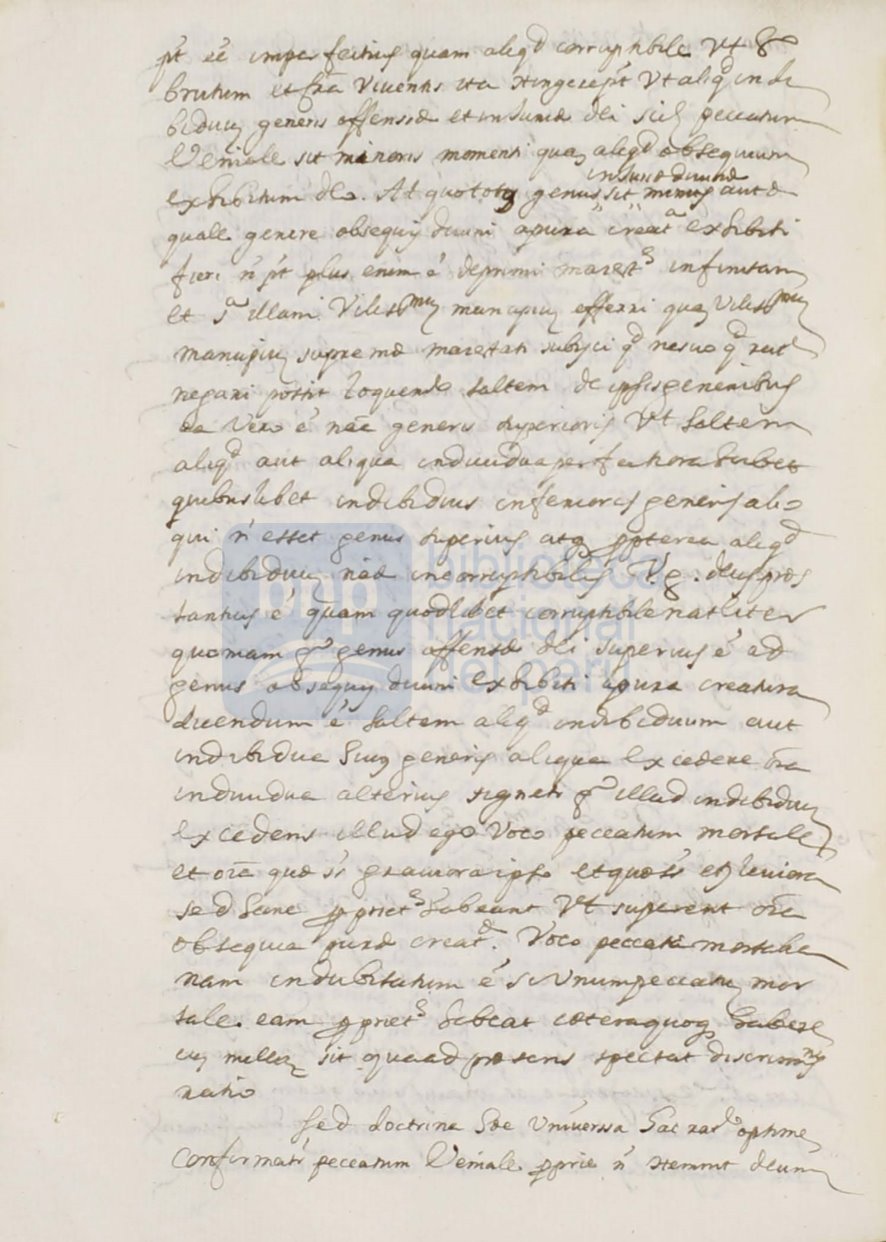 pt̃ eẽ imperfectius quam aliqd corruptibile Vt &
brutum et fr̃a Viventis ita stingi pt̃ Vt aliqd indi
biduũ generis offensæ et iniuriæ dei scil peccatum
Veniale sit minoris momenti quaȝ aliqd obsequium
iniuriæ divinæ
exhibitum deo. At quo totũ genus sit minus aut æ
quale genere obsequij divini apura creata exhibiti
fieri ñ pt̃ plus enim ẽ deprimi maiestẽ infinitam
et illam Vilissmũ mancipiũ offerri quaȝ Vilissmũ
mancipiũ supremæ maiestati subijci qd nescio qd
negari possit loquendo saltem de ipsis generibus
ea Vero ẽ nãe generis superioris Vt saltem
aliqd aut aliqua individua perfectiora habet
quibuslibet indibiduis inferioris generis alio
qui ñ esset genus superius atq̃ ppterea aliqd
indibiduũ næ incorruptibilis V.g: deus præs
tantius ẽ quam quodlibet corruptibile natliter
quoniam gº genus offensæ dei superius ẽ ad
genus obsequij divini exhibiti apura creatura
dicendum ẽ saltem aliqd indibiduum aut
indibidua huiȝ generis aliqua excedere oĩa
individua alterius signati gº illud indibiduũ
excedens illud ego Voco peccatum mortale
et oĩa quæ st̃ graviora ipso et quæ st̃ etȝ leviora
sed hanc ppriet̃ẽ habeant Vt superent oĩa
obsequia puræ creatæ. Voco peccata mortalia
nam indubitatum ẽ si Unum peccatũ mor
tale eam ppriet̃ẽ habeat cætera quoq̃ habere
cũ nulla sit quaad præsens spectat discrimi
natio
Sed doctrina hæc Universa hac raõe optime
Confirmatr̃ peccatum Veniale pprie ñ stemnit deum